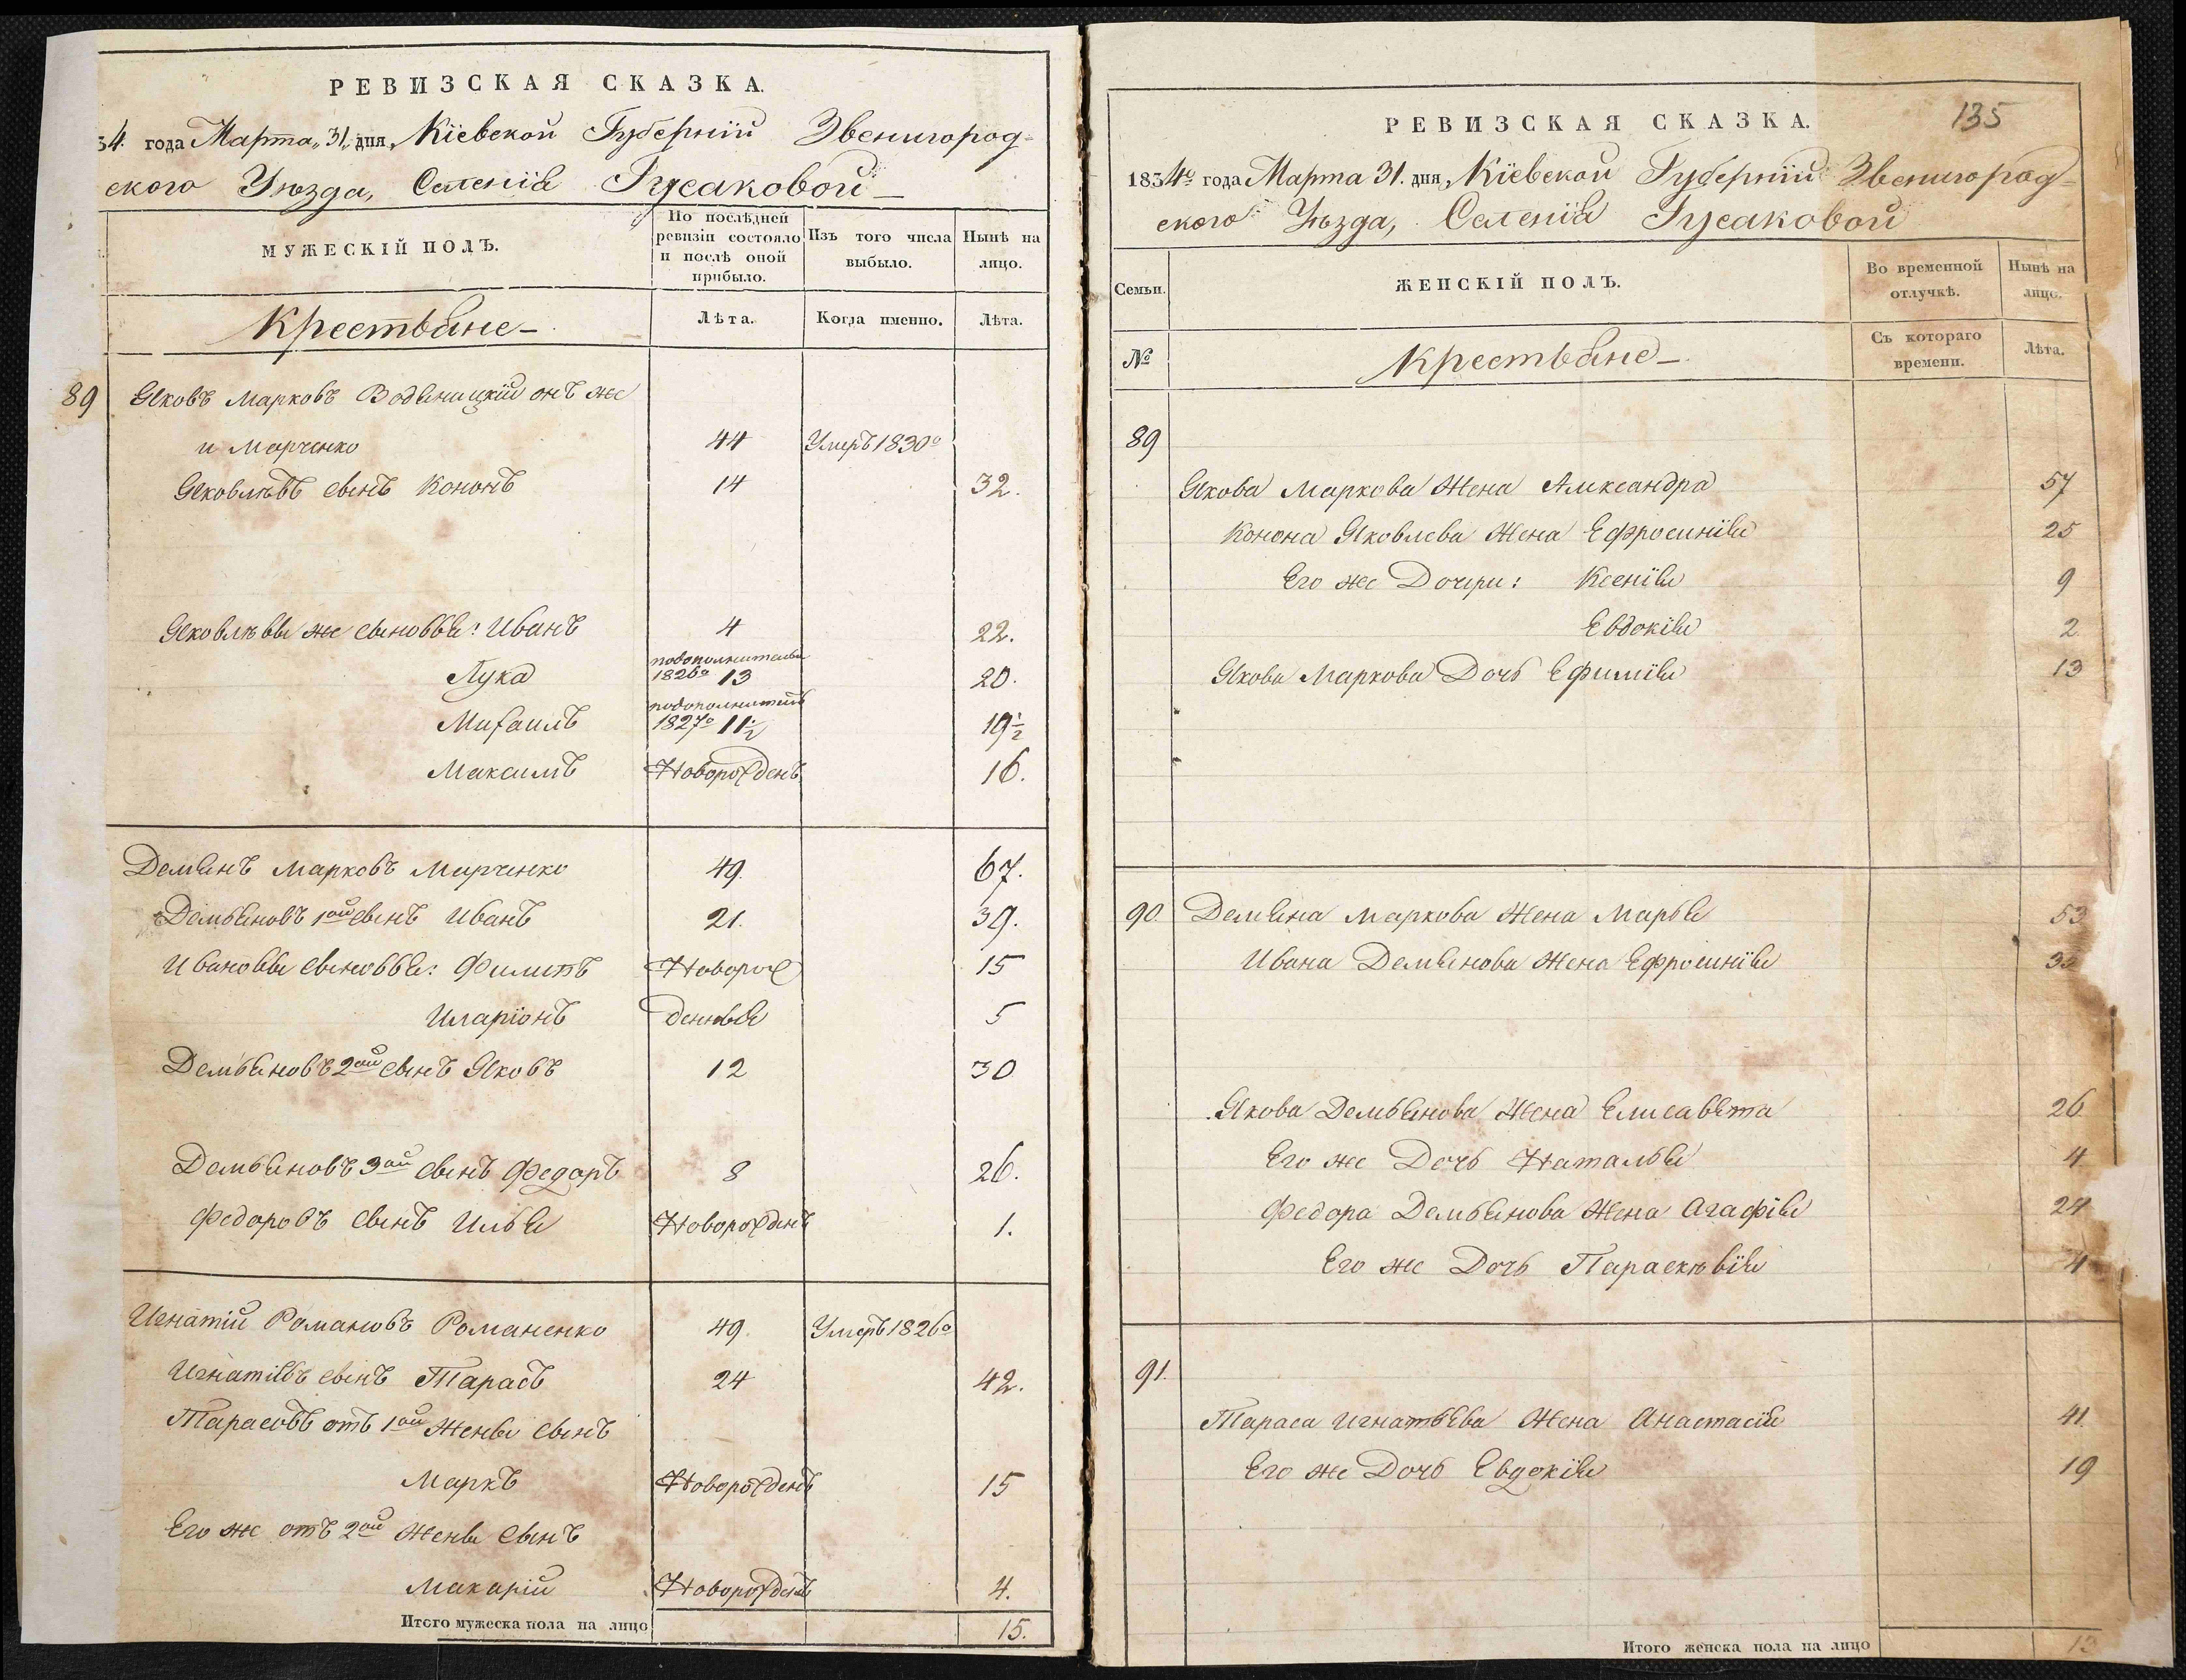 РЕВИЗСКАЯ СКАЗКА.
34. года Марта „31„ дня, Кіевской Губерніи Звенигород-
ского Уѣзда, Селенія Гусаковой
МУЖЕСКІЙ ПОЛЪ.
По послѣдней ревизіи состояло и послѣ оной прибыло.
Изъ того числа выбыло.
Нынѣ на лицо.
Крестьяне
Лѣта.
Когда именно.
Лѣта.
89 Яковъ Марковъ Водяницкій онъ же
и Марченко 44 Умеръ 1830º
Яковлѣвъ сынъ Кононъ 14 32.
Яковлѣвы же сыновья: Иванъ 4 22.
Лука 1826º 13 20.
Михаилъ 1827º 11½ 19½
Максимъ Новорожденъ 16.
Демянъ Марковъ Марченко 49. 67.
Демьяновъ 1ой сынъ Иванъ 21. 39.
Ивановы сыновья: Филипъ Новорож 15
Иларіонъ денныя 5
Демьяновъ 2ой сынъ Яковъ 12 30
Демьяновъ 3ой сынъ Федоръ 8 26.
Федоровъ сынъ Илья Новорожденъ 1.
Игнатій Романовъ Романенко 49. Умеръ 1826º
Игнатіевъ сынъ Тарасъ 24 42.
Тарасовъ отъ 1ой Жены сынъ
Маркъ Новорожденъ 15
Его же отъ 2ой Жены сынъ
Макарій Новорожденъ 4.
Итого мужеска пола на лицо 15.
135
РЕВИЗСКАЯ СКАЗКА.
1834º года Марта 31. дня, Кіевской Губерніи Звенигород-
ского Уѣзда, Селенія Гусаковой
Семьи.
ЖЕНСКІЙ ПОЛЪ.
Во временной отлучкѣ.
Нынѣ на лицо.
№
Крестьяне
Съ котораго времени.
Лѣта.
89
Якова Маркова Жена Александра 57
Конона Яковлева Жена Ефросинія 25
Его же Дочери: Ксенія 9
Евдокія 2
Якова Маркова Дочь Ефимія 13
90. Демяна Маркова Жена Марья 53
Ивана Демянова Жена Ефросинія
Якова Демьянова Жена Елисавета 26
Его же Дочь Наталья 4
Федора Демьянова Жена Агафія 24
Его же Дочь Параскѣвія 4
91.
Тараса Игнатьева Жена Анастасія 41
Его же Дочь Евдокія 19
Итого женска пола на лицо 13